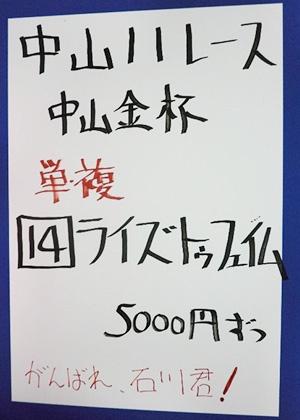 中山11レース
中山金杯
単・複
14 ライズトゥフェイム
5000円ずつ
がんばれ、石川君!